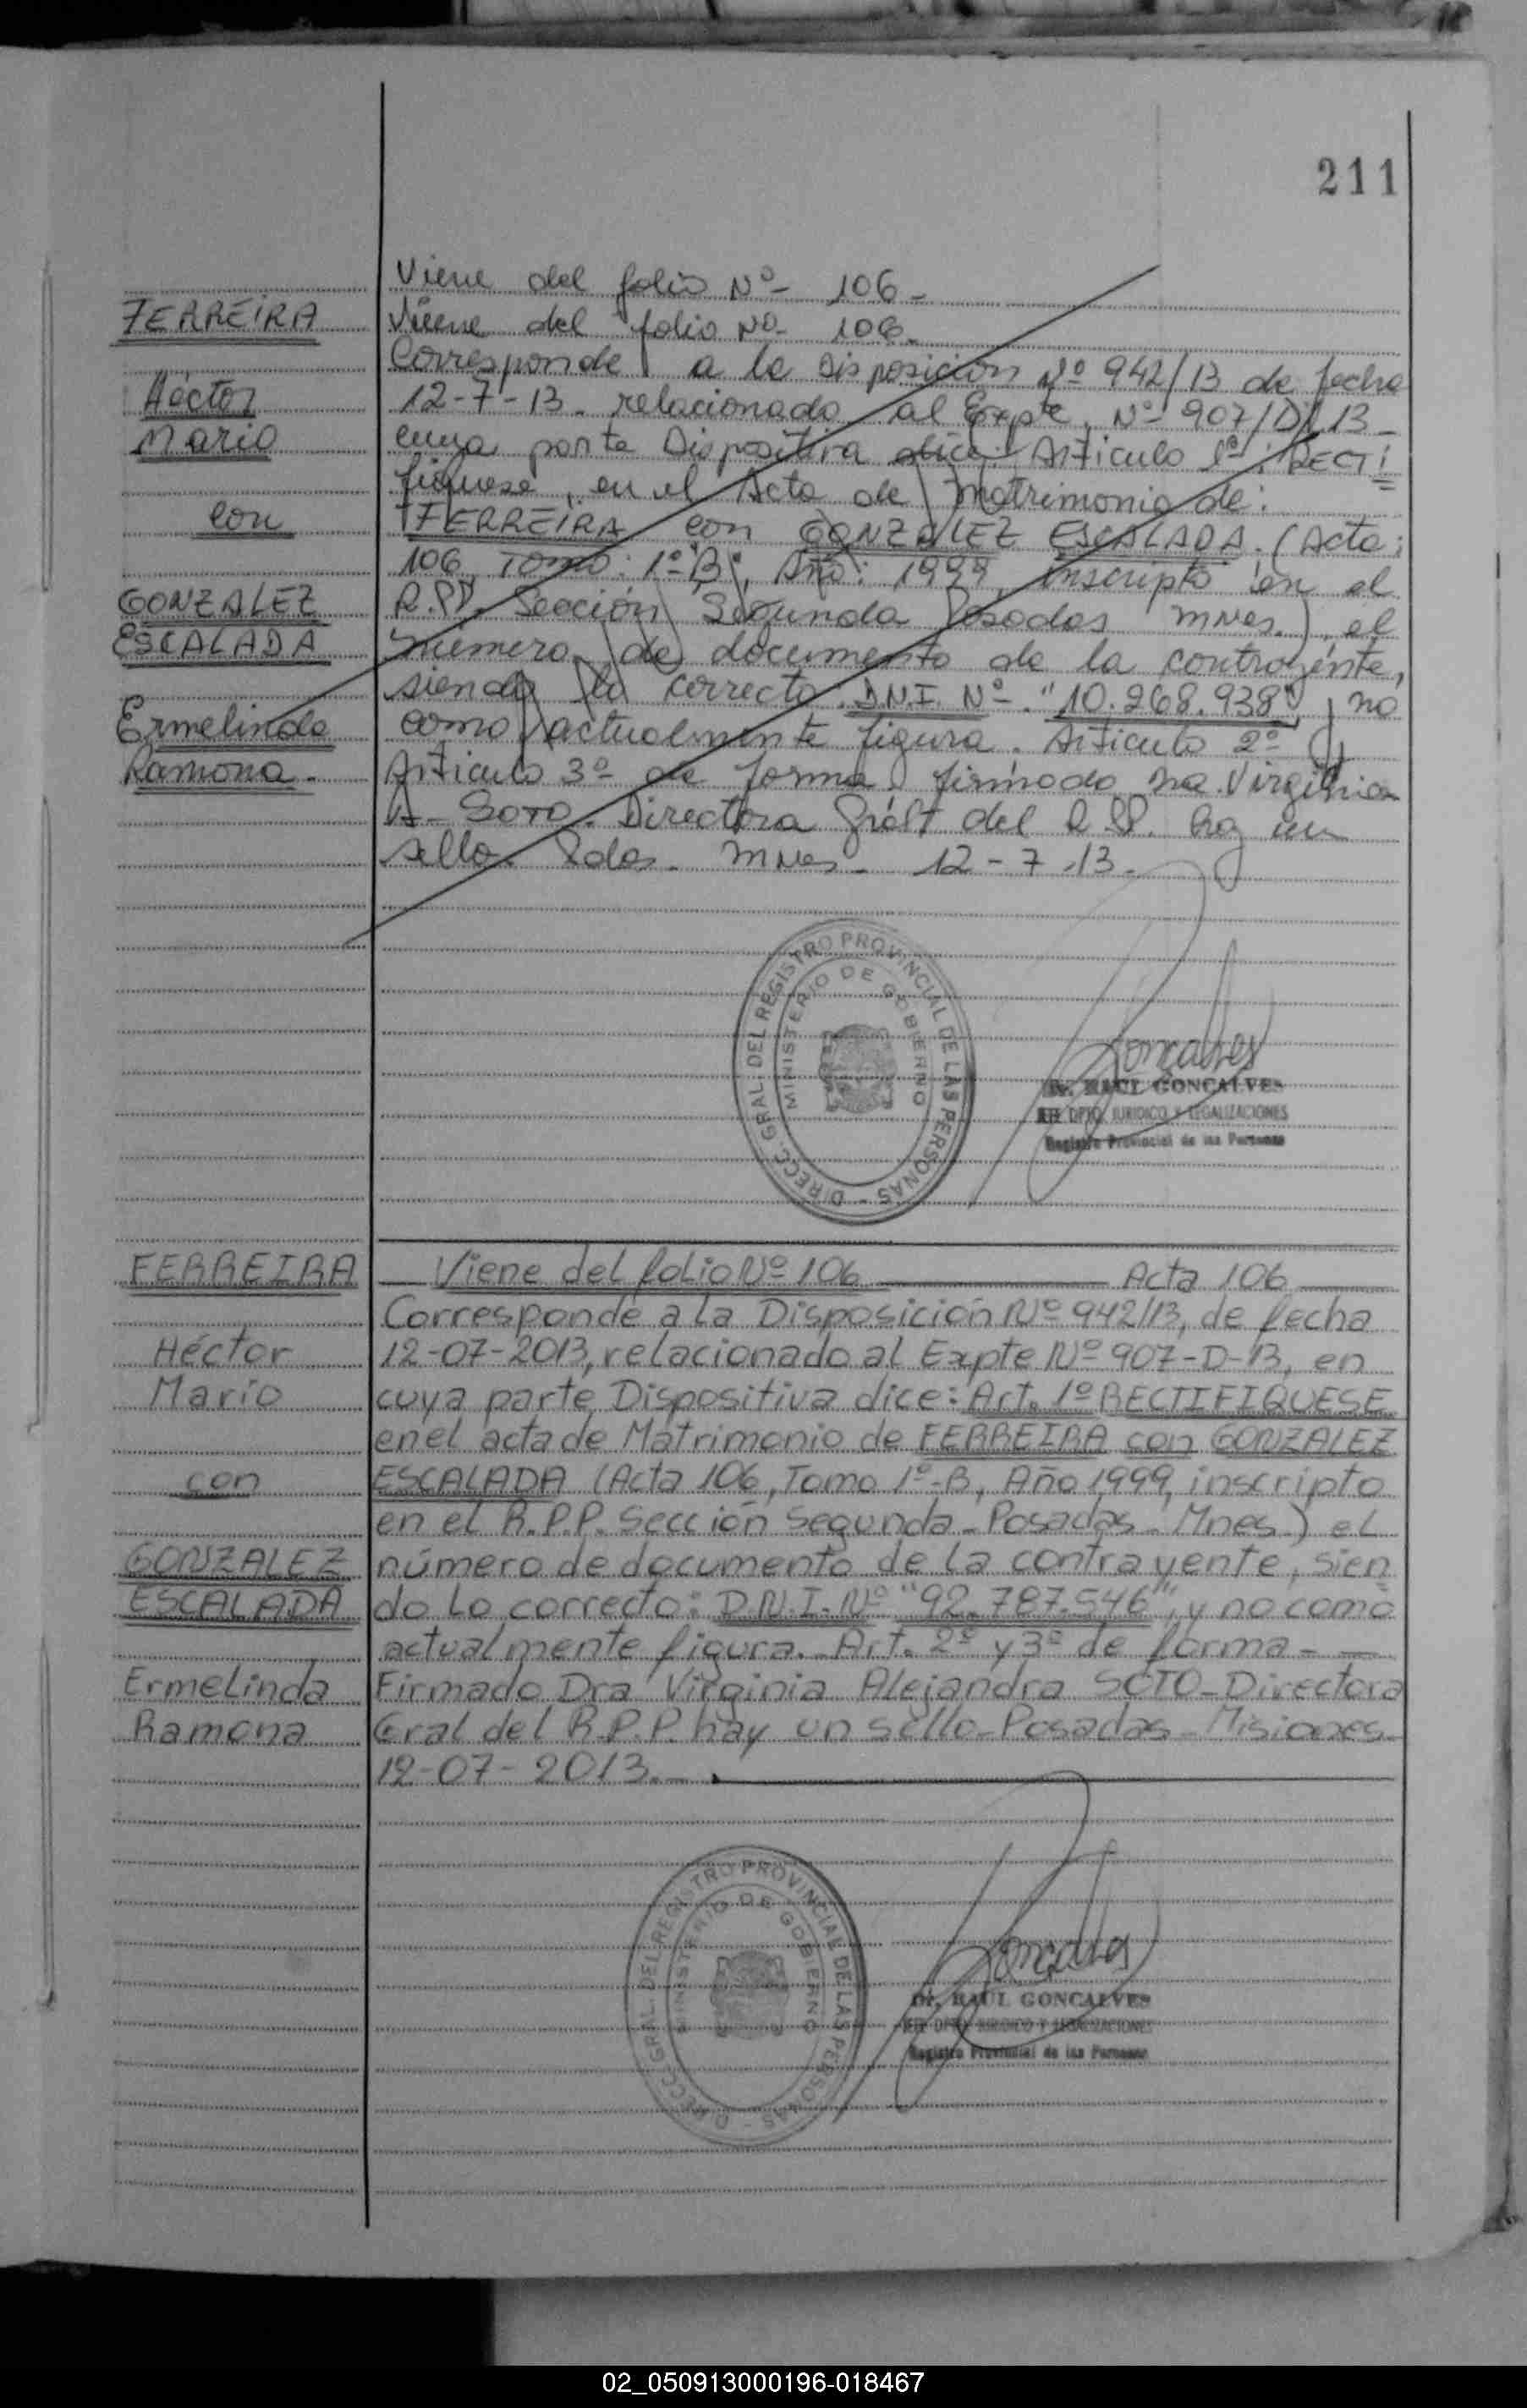 211
Viene del folio Nº- 106-
FERREIRA
Viene del folio Nº- 106.
Corresponde a la Disposición Nº 942/13 de fecha
Héctor
12-7-13. relacionado al Expte. Nº 907/D/13-
Mario
cuya parte Dispositiva dice: Articulo 1º: RECTI
fiquese, en el Acta de Matrimonio de:
con
FERREIRA con GONZALEZ ESCALADA. (Acta:
106, Tomo: 1º "B", Año: 1999, inscripto en el
GONZALEZ
R.P.P. Sección Segunda Posadas Mnes.), el
ESCALADA
número de documento de la contrayente,
siendo lo correcto. D.N.I. Nº. "10.268.938" y no
Ermelinda
como actualmente figura. Articulo 2º y
Ramona.
Articulo 3º de forma firmado Virginia
A. SOTO. Directora Gral del R.P.P. hay un
sello. Pdas. Mnes. 12-7-13.
DIRECC. GRAL. DEL REGISTRO PROVINCIAL DE LAS PERSONAS -
MINISTERIO DE GOBIERNO
Goncalves
Dr. RAUL GONCALVES
JEFE DPTO. JURIDICO Y LEGALIZACIONES
Registro Provincial de las Personas
FERREIRA
Viene del folio Nº 106 Acta 106
Corresponde a la Disposición Nº 942/13, de fecha
Héctor
12-07-2013, relacionado al Expte Nº 907-D-13, en
Mario
cuya parte Dispositiva dice: Art. 1º RECTIFIQUESE
en el acta de Matrimonio de FERREIRA con GONZALEZ
con
ESCALADA (Acta 106, Tomo 1º-B, Año 1999, inscripto
en el R.P.P. Sección Segunda - Posadas - Mnes.) el
GONZALEZ
número de documento de la contrayente, sien
ESCALADA
do lo correcto: D.N.I. Nº "92.787.546", y no como
actualmente figura. Art. 2º y 3º de forma-
Ermelinda
Firmado Dra Virginia Alejandra SOTO-Directora
Ramona
Gral del R.P.P. hay un sello-Posadas-Misiones-
12-07-2013.
DIRECC. GRAL. DEL REGISTRO PROVINCIAL DE LAS PERSONAS -
MINISTERIO DE GOBIERNO
Goncalves
Dr. RAUL GONCALVES
JEFE DPTO. JURIDICO Y LEGALIZACIONES
Registro Provincial de las Personas
02_050913000196-018467